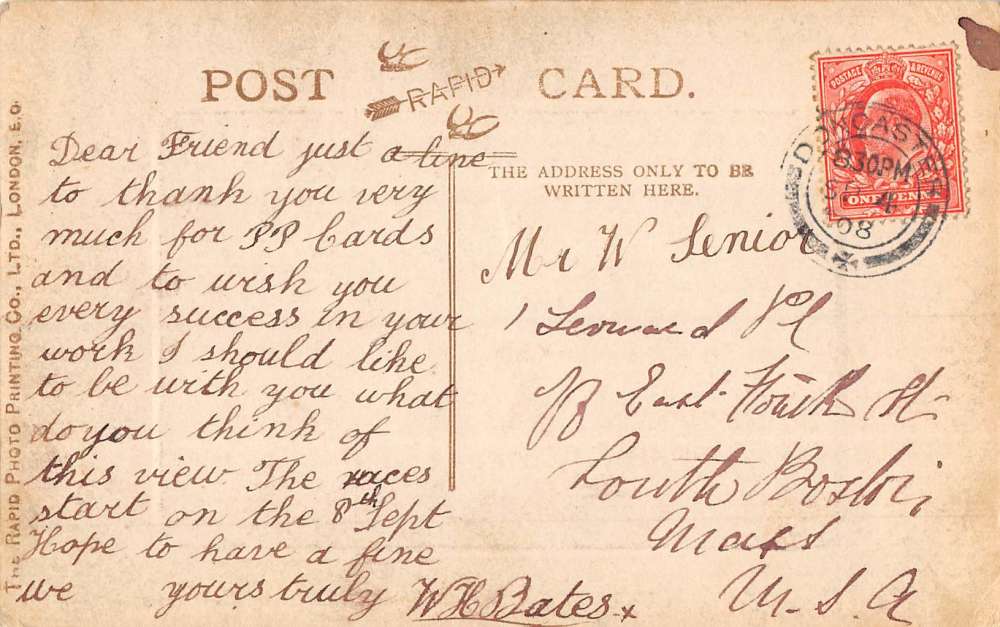 POST CARD.
RAPID
THE ADDRESS ONLY TO BE
WRITTEN HERE.
POSTAGE & REVENUE
ONE PENNY
DONCASTER
830PM
SP 4
08
Dear Friend just a line
to thank you very
much for PP Cards
and to wish you
every success in your
work I should like
to be with you what
do you think of
this view. The races
start on the 8th Sept
Hope to have a fine
we yours truly W H Bates. x
Mr W Senior
1 Leonard Pl
East Fourth St
South Boston,
Mass
U. S. A
THE RAPID PHOTO PRINTING CO., LTD., LONDON, E.C.